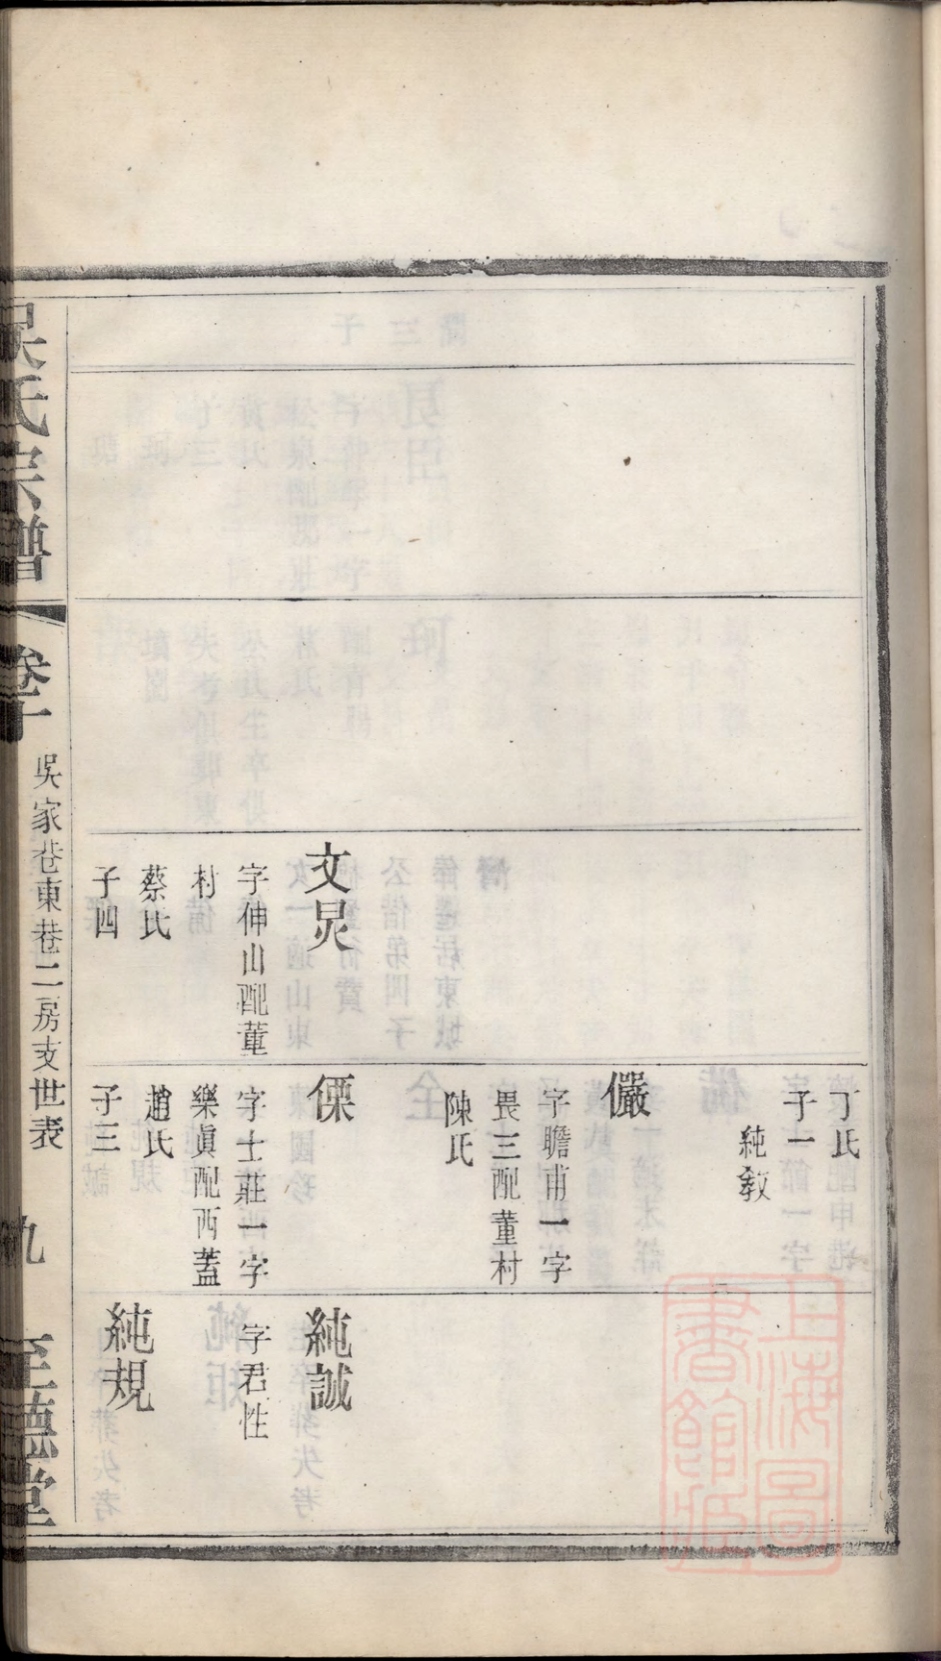 文炅
字伸山配董
村
蔡氏
子四
丁氏
子一
純教
儼
字瞻甫一字
畏三配董村
陳氏
傈
字士莊一字
樂眞配西蓋
趙氏
子三
純誠
字君性
純規
吳氏宗譜
卷十
吳家巷東巷二房支世表
九
至德堂
上海圖
書館藏